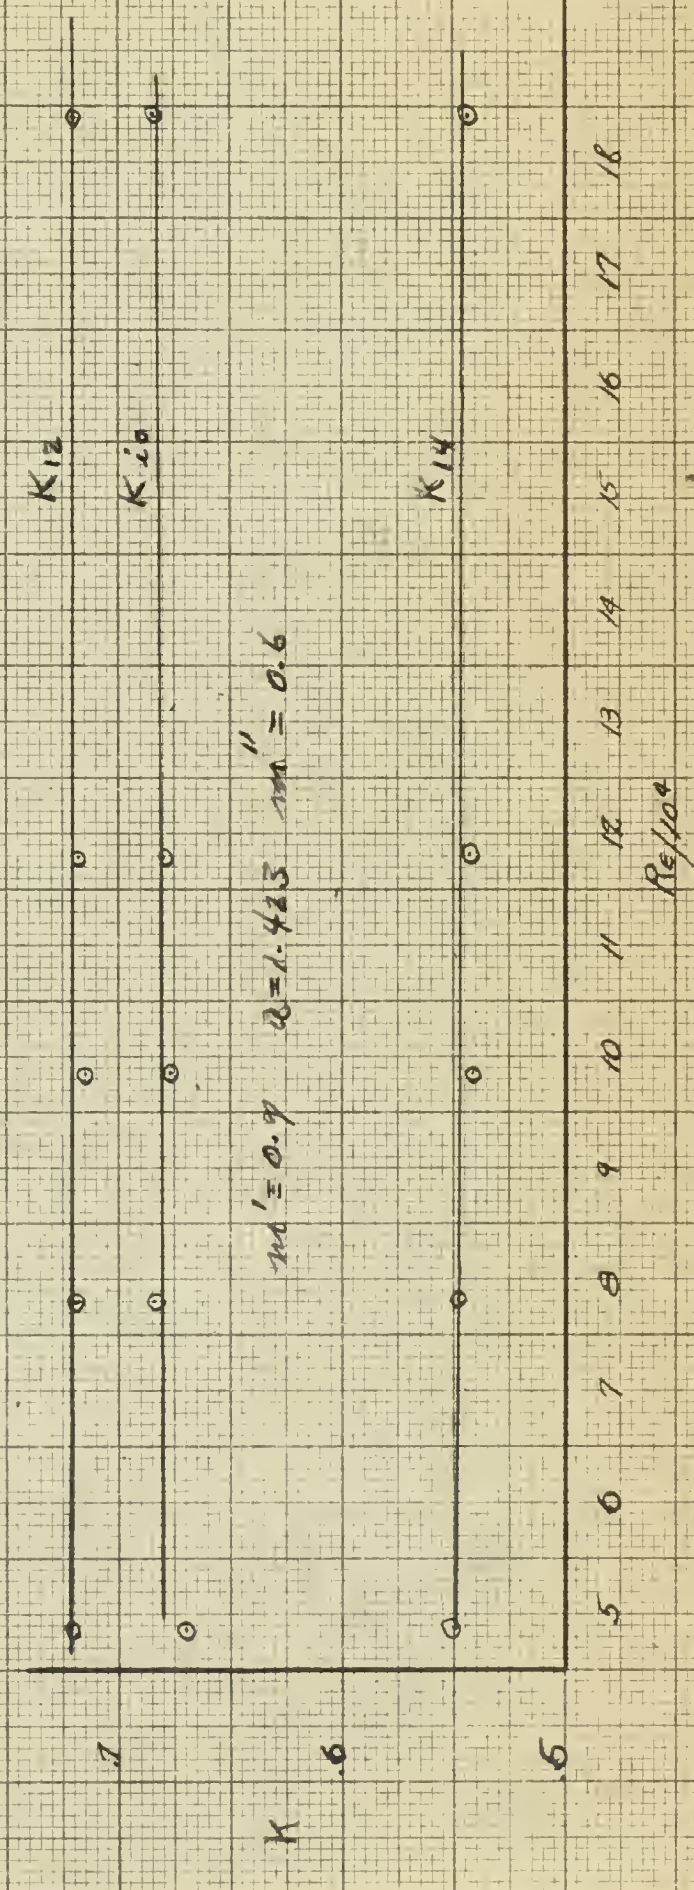 K12
K10
K14
m' = 0.9 a = 1.423 m'' = 0.6
K
.7
.6
.5
5 6 7 8 9 10 11 12 13 14 15 16 17 18
Re/10⁴